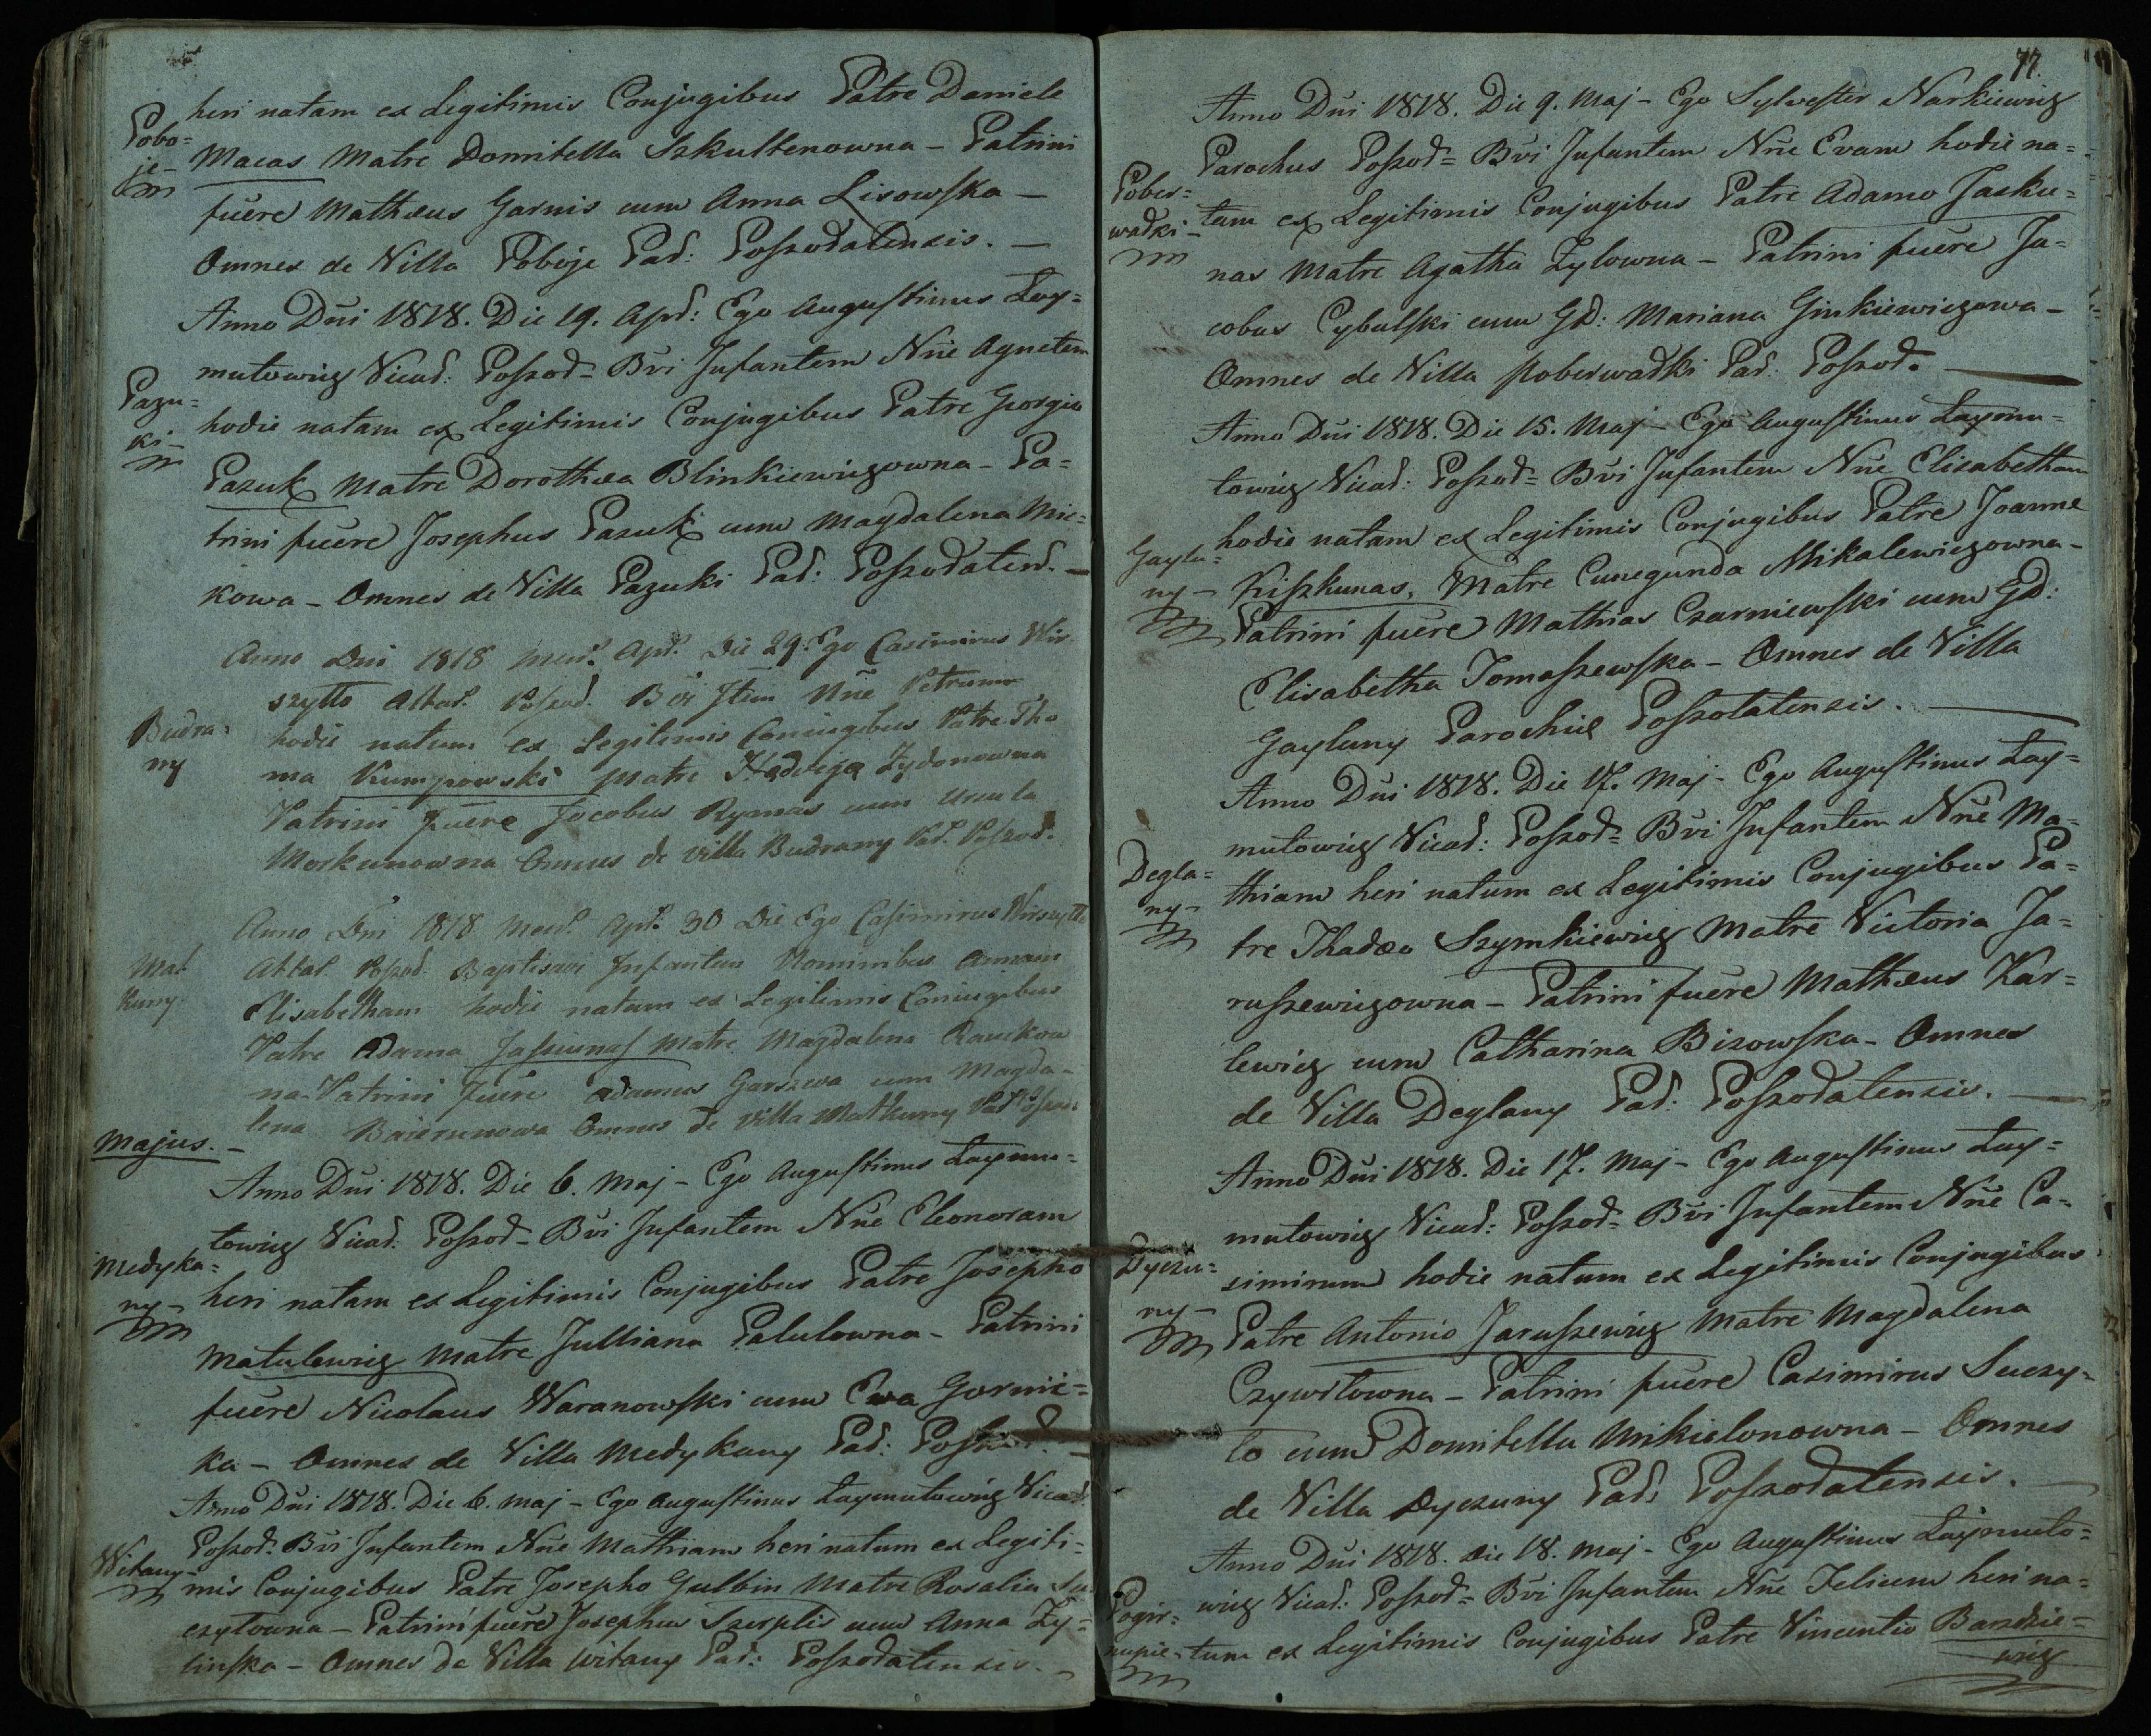 heri natam ex Legitimis Conjugibus Patre Daniele
Pobo=
je-
Macas Matre Domitella Szkultenowna - Patrini
fuere Mathæus Garnis cum Anna Lisowska -
Omnes de Villa Poboje Par: Poszodatensis. -
Anno Dni 1818. Die 19. Apr: Ego Augustinus Lay=
mutowicz Vicar: Poszod= Bvi Infantem Nne Agnetem
Pazu=
ki-
hodie natam ex Legitimis Conjugibus Patre Georgio
Pazuk Matre Dorothæa Blinkiewiczowna - Pa=
trini fuere Josephus Pazuk cum Magdalena Mic=
kowa - Omnes de Villa Pazuki Par: Poszodatens. -
Anno Dni 1818 Mens. Apr. Die 29. Ego Casimirus Wir
szytto Altar. Poszod. Bvi Item Nne Petrum
Budra=
ny
hodie natum ex Legitimis Coniugibus Patre Tho
ma Kumpowski Matre Hedvige Zydonowna
Patrini fuere Jocobus Rymas cum Ursula
Morkunowna Omnes de villa Budrany Par. Poszod.
Anno Dni 1818 Mens. Apr. 30 Die Ego Casimirus Wirszytto
Mat
kuny
Altar. Poszod. Baptisavi Infantem Nominibus Annam
Elisabetham hodie natam ex Legitimis Coniugibus
Patre Adama Matre Magdalena
na Patrini fuere Adamus Garszwa cum Magda-
lena Omnes de Villa Matkuny Par. Poszod.
Majus. -
Anno Dni 1818. Die 6. Maj - Ego Augustinus Laymu=
towicz Vicar: Poszod- Bvi Infantem Nne Eleonoram
Medyka=
ny-
heri natam ex Legitimis Conjugibus Patre Josepho
Matulewicz Matre Julliana Palulowna - Patrini
fuere Nicolaus Waranowski cum Ewa Gornic=
ka - Omnes de Villa Medykany Par: Poszod. -
Anno Dni 1818. Die 6. Maj - Ego Augustinus Laymutowicz Vicar:
Poszod. Bvi Infantem Nne Mathiam heri natum ex Legiti=
Witany-
mis Conjugibus Patre Josepho Gulbin Matre Rosalia Su
czytowna - Patrini fuere Josephus Szerplis cum Anna Zy=
linska - Omnes de Villa Witany Par: Poszodatensis. -
77.
Anno Dni 1818. Die 9. Maj - Ego Sylvester Narkiewicz
Parochus Poszod= Bvi Infantem Nne Evam hodie na=
Pober=
wadki-
tam ex Legitimis Conjugibus Patre Adamo Jasku=
nas Matre Agatha Zylowna - Patrini fuere Ja=
cobus Cybulski cum GD: Mariana Ginkiewiczowa -
Omnes de Villa Poberwadki Par: Poszod.
Anno Dni 1818. Die 15. Maj - Ego Augustinus Laymu=
towicz Vicar: Poszod= Bvi Infantem Nne Elisabetham
hodie natam ex Legitimis Conjugibus Patre Joanne
Gaylu=
ny-
Kiszkunas, Matre Cunegunda Mikalewiczowna -
Patrini fuere Mathias Czarniewski cum GD:
Elisabetha Tomaszewska - Omnes de Villa
Gayluny Parochiæ Poszotatensis.
Anno Dni 1818. Die 17. Maj - Ego Augustinus Lay=
mutowicz Vicar: Poszod= Bvi Infantem Nne Ma=
Degla=
ny-
thiam heri natum ex Legitimis Conjugibus Pa=
tre Thadæo Szymkiewicz Matre Victoria Ja=
ruszewiczowna - Patrini fuere Mathæus Kar=
lewicz cum Catharina Bizowska - Omnes
de Villa Deglany Par: Poszodatensis.
Anno Dni 1818. Die 17. Maj - Ego Augustinus Lay=
mutowicz Vicar: Poszod= Bvi Infantem Nne Ca=
Dyczu=
ny-
simirum hodie natum ex Legitimis Conjugibus
Patre Antonio Jaruszewicz Matre Magdalena
Czywilowna - Patrini fuere Casimirus Suczy=
lo cum Domitella Mikielonowna - Omnes
de Villa Dyczuny Par: Poszodatensis.
Anno Dni 1818. Die 18. Maj - Ego Augustinus Laymuto=
wicz Vicar: Poszod= Bvi Infantem Nne Felicem heri na=
Pogir=
nupie-
tum ex Legitimis Conjugibus Patre Vincentio Barzdzie=
wicz